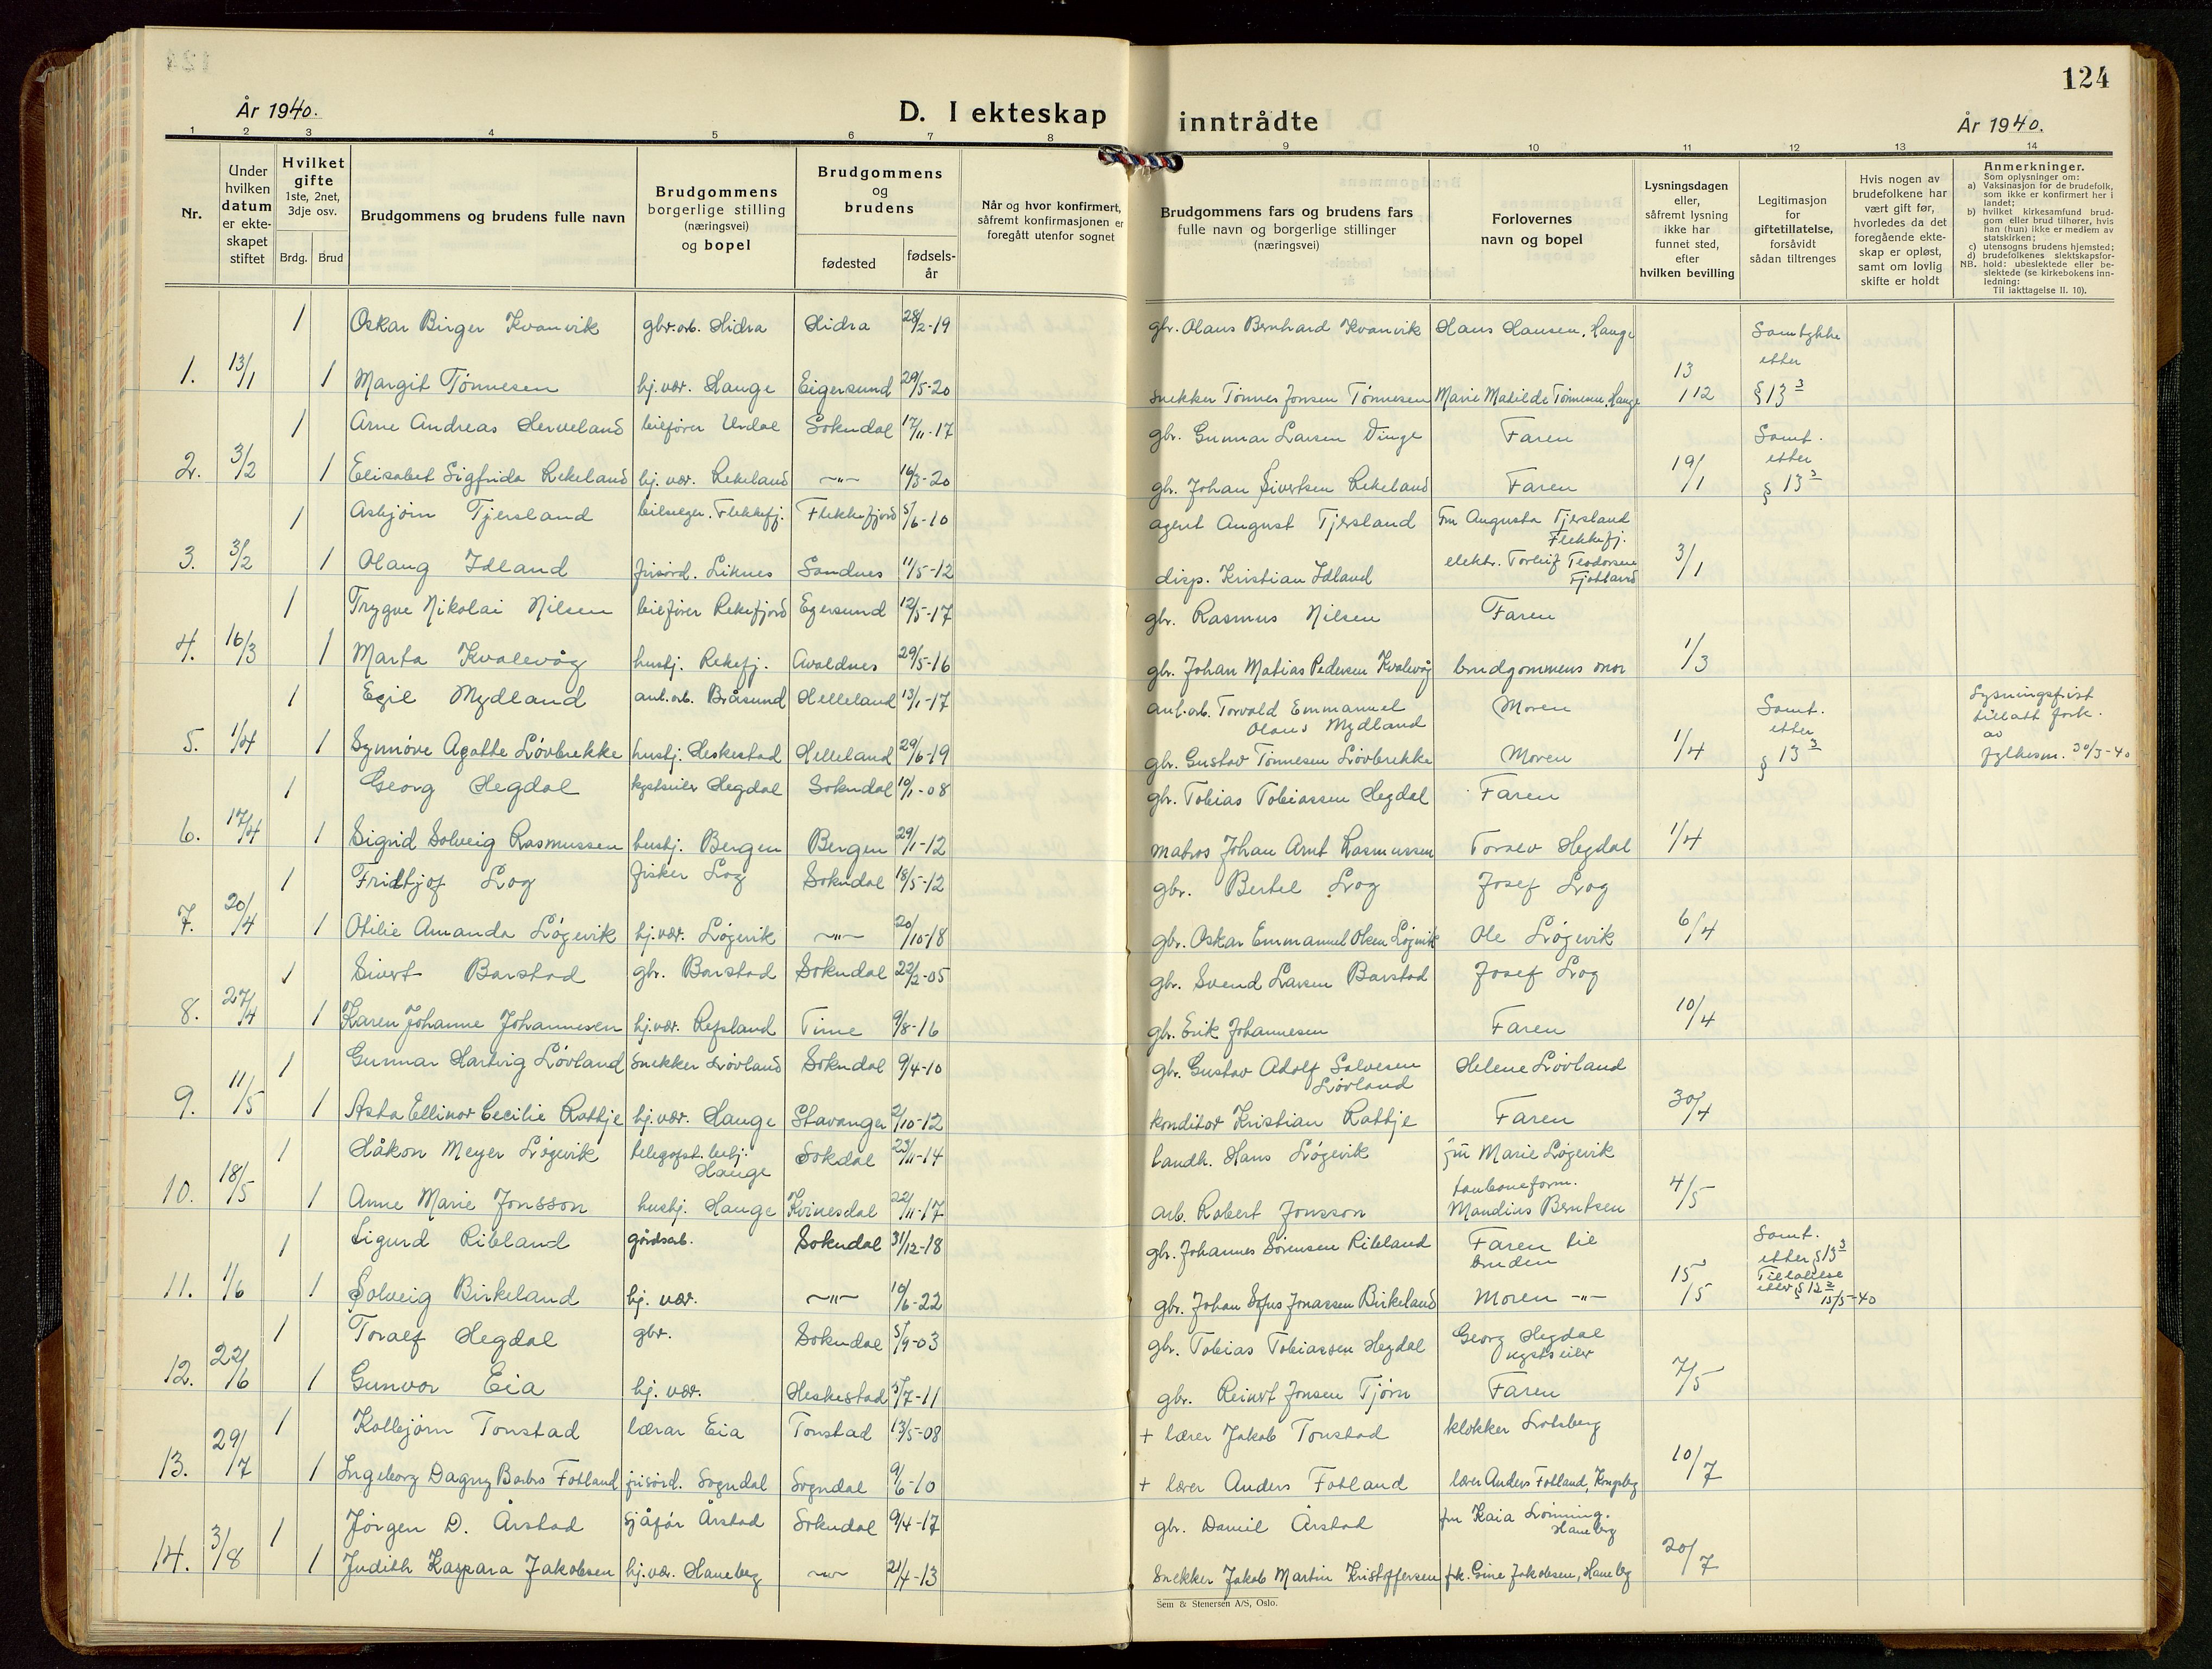 124
År 1940.
D. I ekteskap inntrådte
År 1940.
1 2 3 4 5 6 7 8 9 10 11 12 13 14
Nr.
Under hvilken datum er ekteskapet stiftet
Hvilket gifte
1ste, 2net, 3dje osv.
Brdg. Brud
Brudgommens og brudens fulle navn
Brudgommens borgerlige stilling (næringsvei) og bopel
Brudgommens og brudens
fødested
fødselsår
Når og hvor konfirmert, såfremt konfirmasjonen er foregått utenfor sognet
Brudgommens fars og brudens fars fulle navn og borgerlige stillinger (næringsvei)
Forlovernes navn og bopel
Lysningsdagen eller, såfremt lysning ikke har funnet sted, efter hvilken bevilling
Legitimasjon for giftetillatelse, forsåvidt sådan tiltrenges
Hvis nogen av brudefolkene har vært gift før, hvorledes da det foregående ekteskap er opløst, samt om lovlig skifte er holdt
Anmerkninger.
Som oplysninger om:
a) Vaksinasjon for de brudefolk, som ikke er konfirmert her i landet;
b) hvilket kirkesamfund brudgom eller brud tilhører, hvis han (hun) ikke er medlem av statskirken;
c) utensogns brudens hjemsted;
d) brudefolkenes slektskapsforhold: ubeslektede eller beslektede (se kirkebokens innledning:
NB. Til iakttagelse II. 10).
1 Oskar Birger Kvanvik gbr.arb. Hidra Hidra 28/2-19 gbr. Olaus Bernhard Kvanvik Hans Hansen, Hauge Samtykke etter
1. 13/1 1 Margit Tønnesen hj.vær. Hauge Eigersund 29/5-20 snekker Tønnes Jonsen Tønnesen Marie Matilde Tønnesen, Hauge 13 1/12 § 13 3
1 Arne Andreas Herveland bilfører Urdal Sokndal 17/11-17 gbr. Gunnar Larsen Dinge Faren Samt. etter
2. 3/2 1 Elisabet Sigfrida Rekeland hj. vær. Rekeland -"- 16/3-20 gbr. Johan Sivertsen Rekeland Faren 19/1 § 13 3
1 Asbjørn Tjersland bileger. Flekkefj. Flekkefjord 5/6-10 agent August Tjersland Fru Augusta Tjersland Flekkefj.
3. 3/2 1 Olaug Idland frisørd. Liknes Sandnes 11/5-12 disp. Kristian Idland elektr. Torleif Teodorsen Fjotland 3/1
1 Trygve Nikolai Nilsen bilfører Rekefjord Egersund 12/5-17 gbr. Rasmus Nilsen Faren
4. 16/3 1 Marta Kvalevåg hushj. Rekefj. Avaldnes 29/5-16 gbr. Johan Matias Pedersen Kvalevåg brudgommens mor 1/3
1 Egil Mydland anl.arb. Bråsund Helleland 13/1-17 anl.arb. Torvald Emmanuel Olaus Mydland Moren Samt. etter Lysningsfrist tillatt fork. av
5. 1/4 1 Synnøve Agathe Løvbrekke hushj. Heskestad Helleland 29/6-19 gbr. Gustav Tønnesen Løvbrekke Moren 1/4 § 13 3 fylkesm. 30/3-40
1 Georg Hegdal kystseiler Hegdal Sokndal 10/1-08 gbr. Tobias Tobiassen Hegdal Faren
6. 17/4 1 Sigrid Solveig Rasmussen hushj. Bergen Bergen 29/1-12 matros Johan Arnt Rasmussen Toralv Hegdal 1/4
1 Fridtjof Log fisker Log Sokndal 18/5-12 gbr. Bertel Log Josef Log
7. 20/4 1 Otilie Amanda Løgevik hj.vær. Løgevik -"- 20/10-18 gbr. Oskar Emmanuel Olsen Løgevik Ole Løgevik 6/4
1 Sivert Barstad gbr. Barstad Sokndal 22/2-05 gbr. Svend Larsen Barstad Josef Log
8. 27/4 1 Karen Johanne Johannesen hj.vær. Refsland Time 9/8-16 gbr. Erik Johannesen Faren 10/4
1 Gunnar Hartvig Løvland snekker Løvland Sokndal 9/4-10 gbr. Gustav Adolf Salvesen Løvland Helene Løvland
9. 11/5 1 Asta Ellinor Cecilie Rattje hj.vær. Hauge Stavanger 2/10-12 konditor Kristian Rattje Faren 30/4
1 Håkon Meyer Løgevik telegrafst. betj. Hauge Sokdal 23/11-14 landh. Hans Løgevik fru Marie Løgevik
10. 18/5 1 Anne Marie Jonsson hushj. Hauge Kvinesdal 22/11-17 arb. Robert Jonsson taubaneform. Mandius Berntsen 4/5
1 Sigurd Ribland gårdsarb. Sokndal 31/12-18 gbr. Johannes Sørensen Ribland Faren til bruden Samt. etter § 13 3
11. 1/6 1 Solveig Birkeland hj. vær. -"- 10/6-22 gbr. Johan Sofus Jonassen Birkeland Moren -"- 15/5 Tillatelse etter § 12 15/5-40
1 Toralf Hegdal gbr. Sokndal 5/9-03 gbr. Tobias Tobiassen Hegdal Georg Hegdal kystseiler
12. 22/6 1 Gunvor Eia hj. vær. Heskestad 5/7-11 gbr. Reinert Jonsen Tjørn Faren 7/5
1 Kolbjørn Tonstad lærar Eia Tonstad 13/5-08 + lærer Jakob Tonstad klokker Lotsberg
13. 29/7 1 Ingeborg Dagny Barbro Fotland frisørd. Sogndal Sogndal 9/6-10 + lærer Anders Fotland lærer Anders Fotland, Kongsberg 10/7
1 Jørgen D. Årstad sjåfør Årstad Sokndal 9/4-17 gbr. Daniel Årstad fru Kaia Lønning. Haneberg
14. 3/8 1 Judith Kaspara Jakobsen hj.vær. Haneberg -"- 21/4-13 snekker Jakob Martin Kristoffersen frk. Gine Jakobsen, Haneberg 20/7
Sem & Stenersen A/S, Oslo.